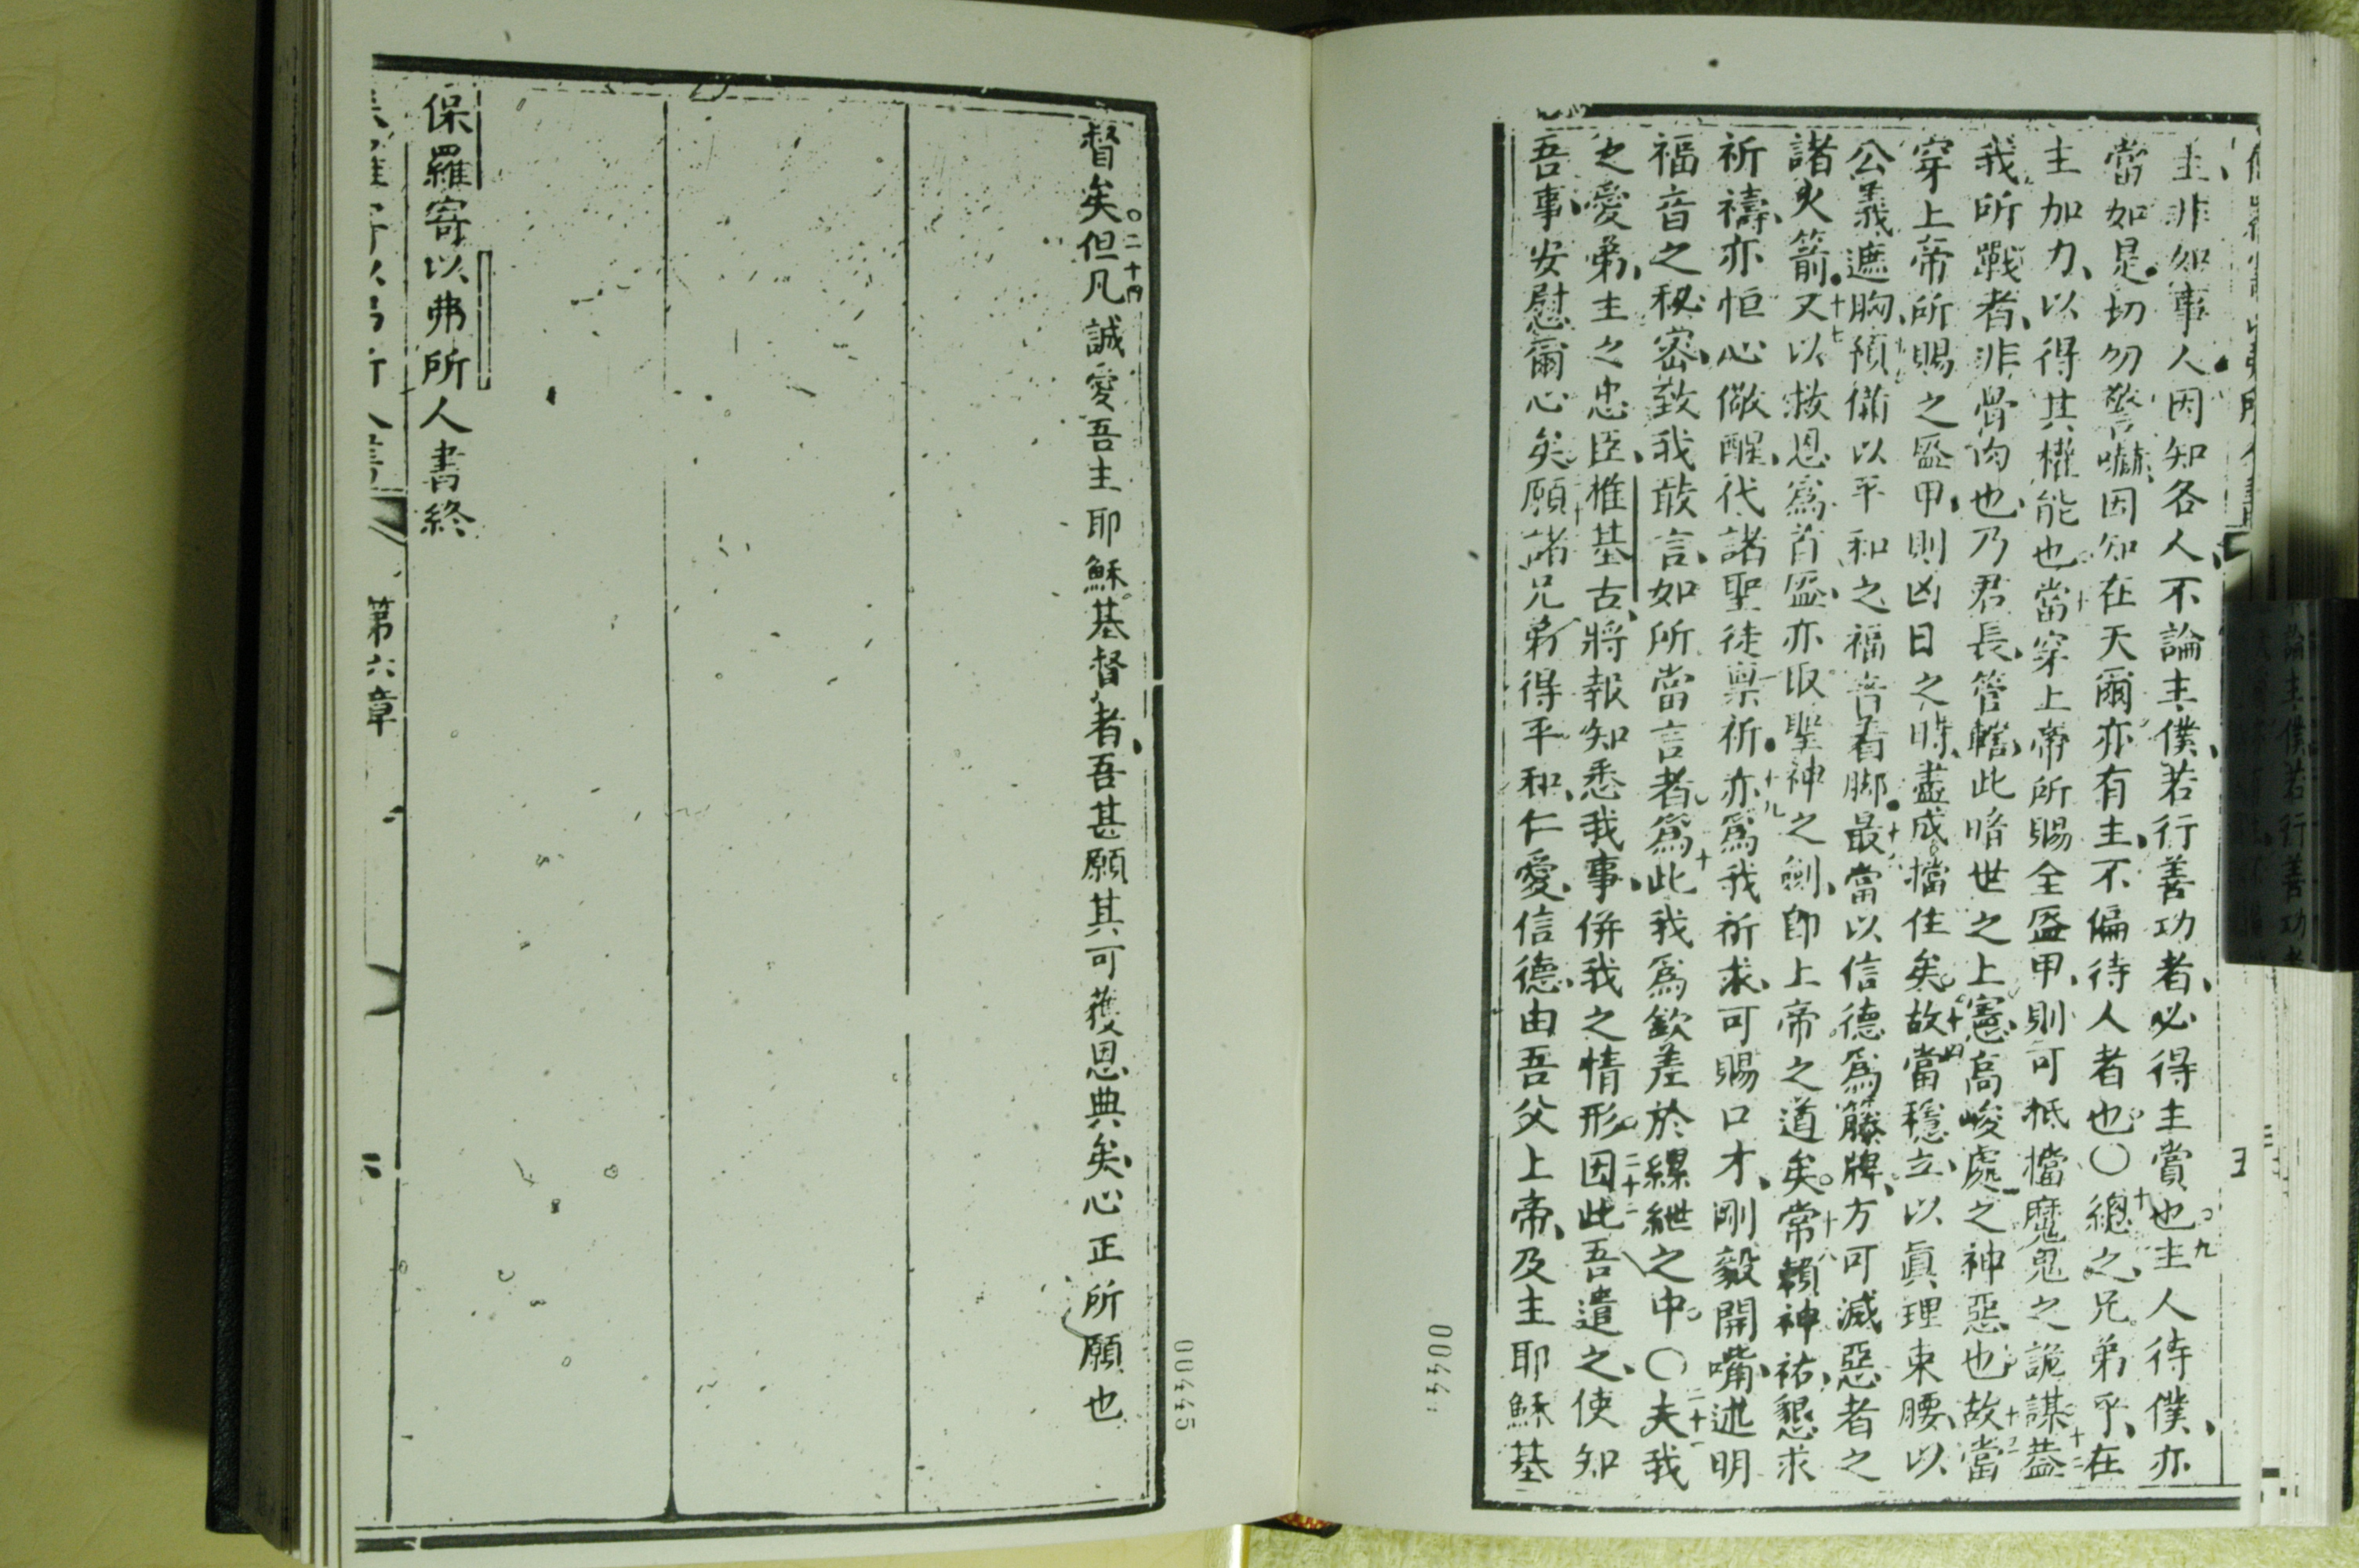 主非如事人因知各人不論主僕若行善功者必得主賞也〇九主人待僕亦
當如是切勿警嚇因知在天爾亦有主不偏待人者也〇十總之兄弟乎在
主加力以得其權能也十一當穿上帝所賜全盔甲則可抵擋魔鬼之詭謀十二蓋
我所戰者非骨肉也乃君長管轄此暗世之上憲高峻處之神惡也十三故當
穿上帝所賜之盔甲則凶日之時盡成擋住矣〇十四故當穩立以眞理束腰以
公義遮胸十五預備以平和之福音着脚十六最當以信德爲籐牌方可滅惡者之
諸火箭十七又以救恩爲首盔亦取聖神之劍卽上帝之道矣〇十八常賴神祐懇求
祈禱亦恒心儆醒代諸聖徒禀祈十九亦爲我祈求可賜口才剛毅開嘴述明
福音之秘密致我敢言如所當言者二十爲此我爲欽差於縲紲之中〇二十一夫我
之愛弟主之忠臣椎基古將報知悉我事併我之情形二十二因此吾遣之使知
吾事安慰爾心矣願諸兄弟得平和仁愛信德由吾父上帝及主耶穌基
00444
督矣〇二十四但凡誠愛吾主耶穌基督者吾甚願其可獲恩典矣心正所願也
保羅寄以弗所人書終
第六章
00445